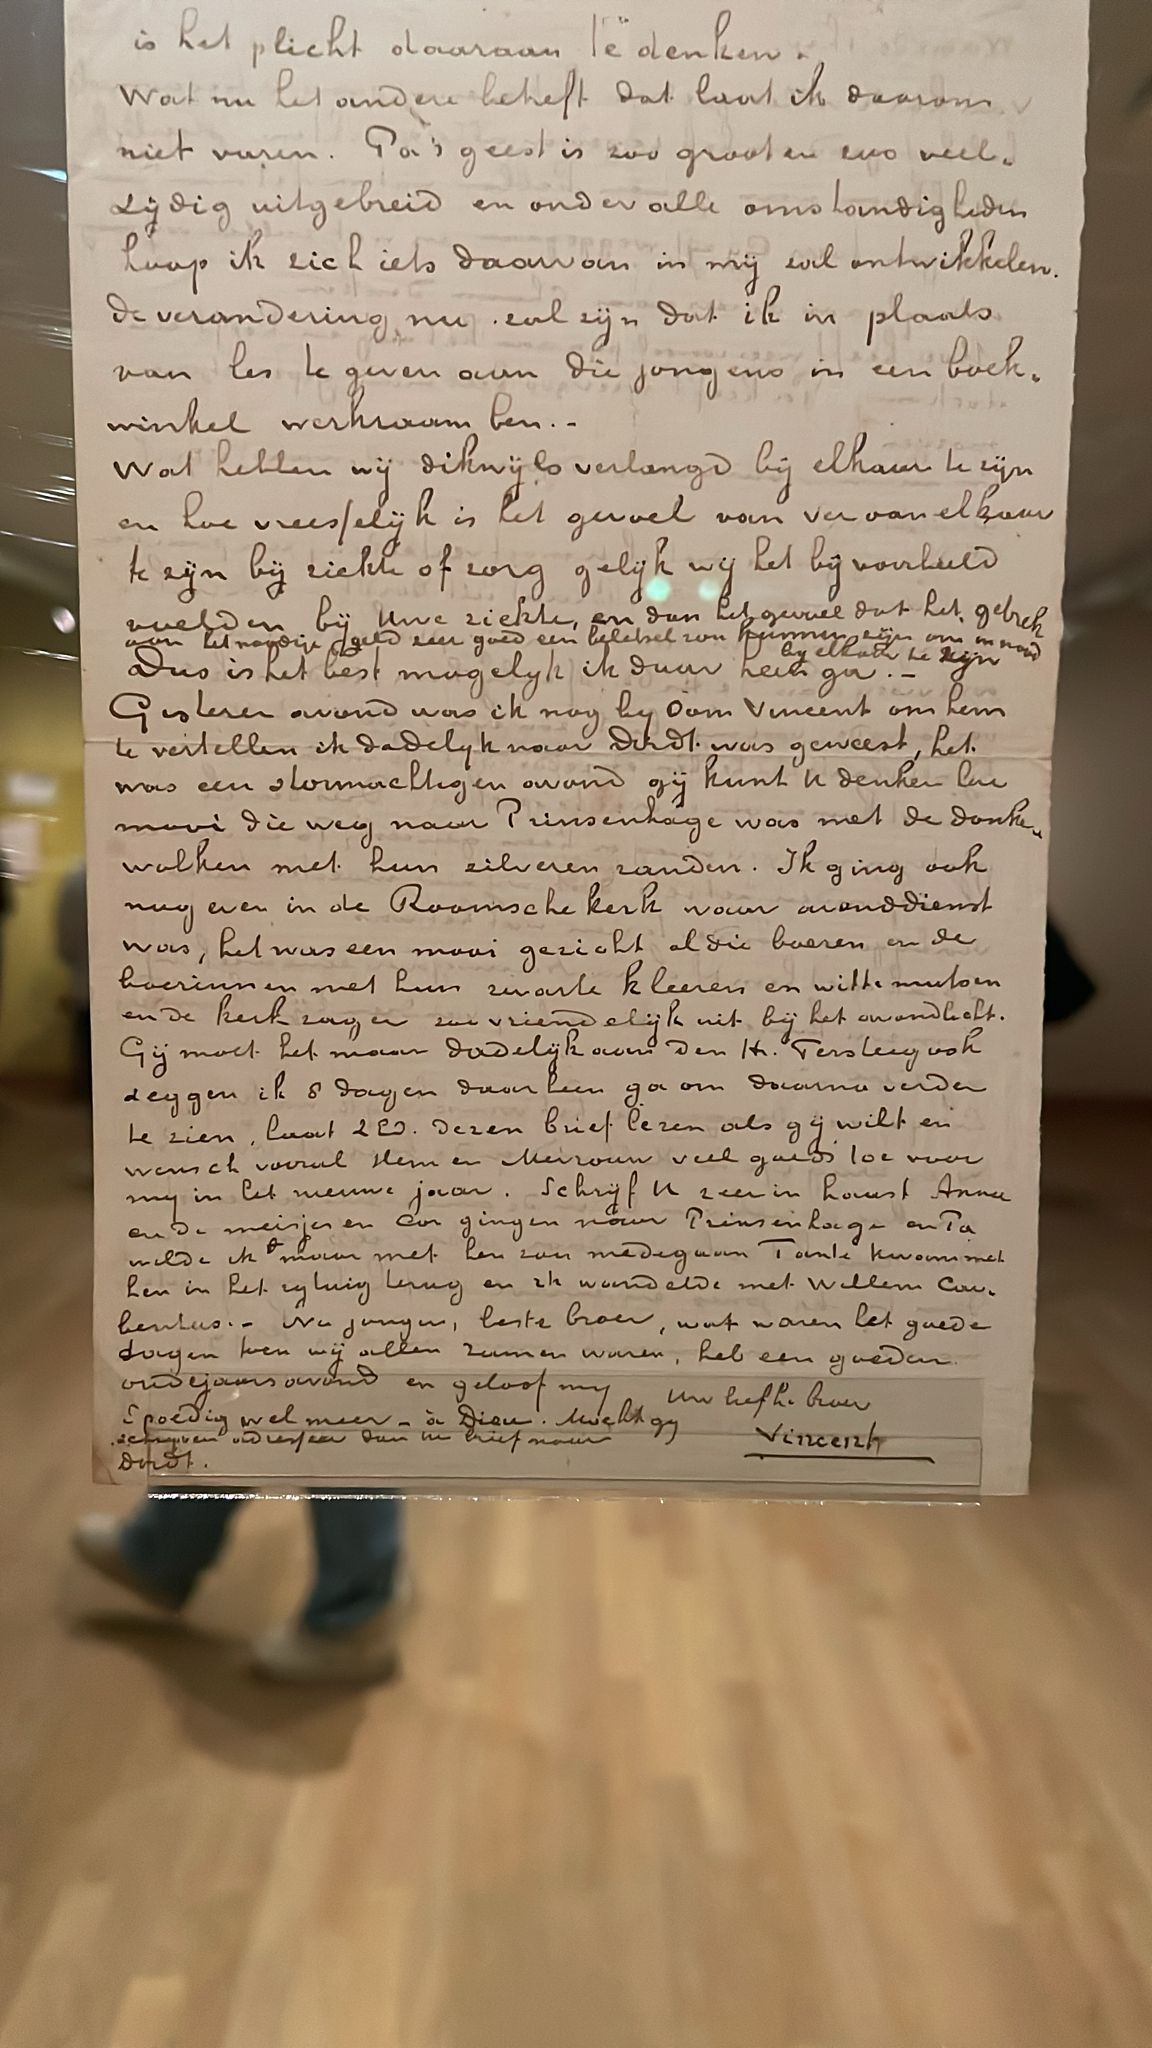 is het plicht daaraan te denken.
Wat nu het andere betreft dat laat ik daarom
niet varen. Pa's geest is zoo groot en zoo veel-
zijdig uitgebreid en onder alle omstandigheden
hoop ik zich iets daarvan in mij zal ontwikkelen.
de verandering nu zal zijn dat ik in plaats
van les te geven aan die jongens in een boek-
winkel werkzaam ben. -
Wat hebben wij dikwijls verlangd bij elkaar te zijn
en hoe vreesselijk is het gevoel van ver van elkaar
te zijn bij ziekte of zorg gelijk wij het bijvoorbeeld
voelden bij Uwe ziekte, en dan het gevoel dat het gebrek
aan het noodige geld zeer goed een beletsel zou kunnen zijn om in nood
bij elkaar te zijn
Dus is het best mogelijk ik daar heen ga. -
Gisteren avond was ik nog bij Oom Vincent om hem
te vertellen ik dadelijk naar Dordt was geweest, het
was een stormachtigen avond gij kunt U denken hoe
mooi die weg naar Prinsenhage was met de donkere
wolken met hun zilveren randen. Ik ging ook
nog even in de Roomsche kerk waar avonddienst
was, het was een mooi gezicht al die boeren en de
boerinnen met hun zwarte kleeren en witte mutsen
en de kerk zag er zoo vriendelijk uit bij het avondlicht.
Gij moet het maar dadelijk aan den Hr. Tersteeg ook
zeggen ik 8 dagen daarheen ga om daarna verder
te zien, laat ZEd. dezen brief lezen als gij wilt en
wensch vooral Hem en Mevrouw veel goeds toe voor
mij in het nieuwe jaar. Schrijf U zeer in haast Anna
en de meisjes en Cor gingen naar Prinsenhage en Pa
wilde ik maar met hen zou medegaan Tante kwam met
hen in het rijtuig terug en ik wandelde met Willem Car-
bentus. - Nu jongen, beste broer, wat waren het goede
dagen toen wij allen zamen waren, heb een goeden
oudejaarsavond en geloof mij
Uw liefh. broer
Vincent
Spoedig wel meer - à Dieu. Mocht gij
schrijven adresseer dan uw brief naar
Dordt.